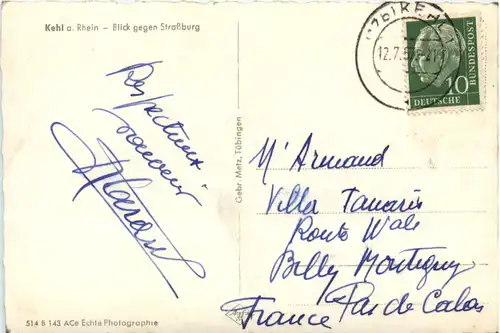 Kehl a. Rhein – Blick gegen Straßburg
12.7.5
10
DEUTSCHE
BUNDESPOST
Respectueux
souvenir
Gebr. Metz, Tübingen
M' Armand
Villa Tamaris
Route Wale
Billy Montigny
Pas de Calais
France
514 B 143 ACe Echte Photographie